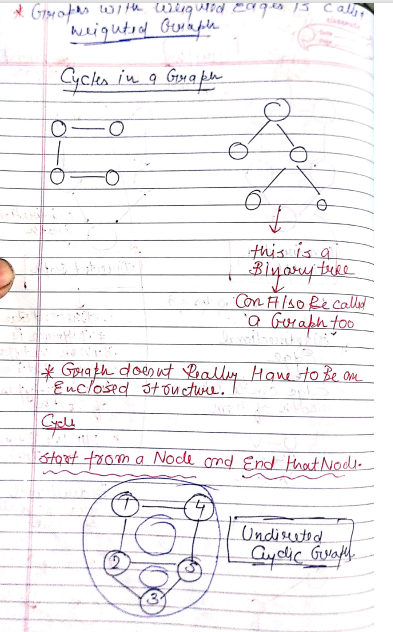 * Graphs with weighted Edges is Calle
weighted Graph
Cycles in a Graph
this is a
Binary tree
Can Also Be called
a Graph too
* Graph doesnt Really Have to Be an
Enclosed structure.
Cycle
start from a Node and End that Node.
1
4
2
5
3
Undirected
Cyclic Graph